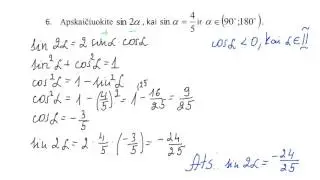 6. Apskaičiuokite sin 2α, kai sin α = 4/5 ir α ∈ (90°;180°).
sin 2α = 2 sinα · cosα
cosα < 0, kai α ∈ II
sin²α + cos²α = 1
cos²α = 1 - sin²α
cos²α = 1 - (4/5)² = 1^(25 - 16/25 = 9/25
cosα = - 3/5
sin 2α = 2 · 4/5 · (-3/5) = -24/25
Ats.: sin 2α = -24/25